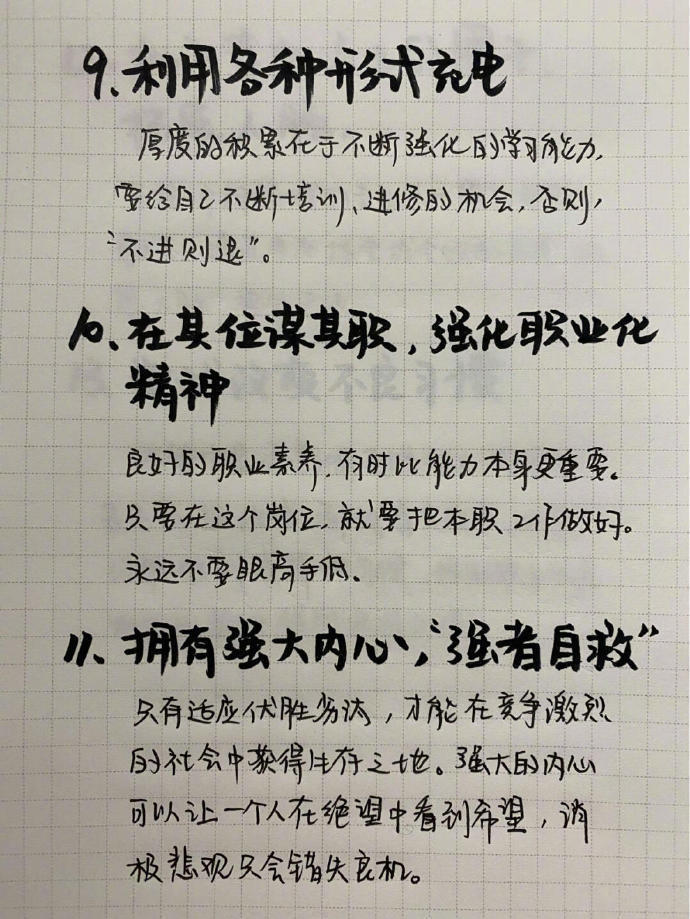 9、利用各种形式充电
厚度的积累在于不断强化的学习能力，
要给自己不断培训、进修的机会，否则，
“不进则退”。
10、在其位谋其职，强化职业化
精神
良好的职业素养，有时比能力本身更重要。
只要在这个岗位，就要把本职工作做好。
永远不要眼高手低。
11、拥有强大内心，“强者自救”
只有适应优胜劣汰，才能在竞争激烈
的社会中获得生存之地。强大的内心
可以让一个人在绝望中看到希望，消
极悲观只会错失良机。